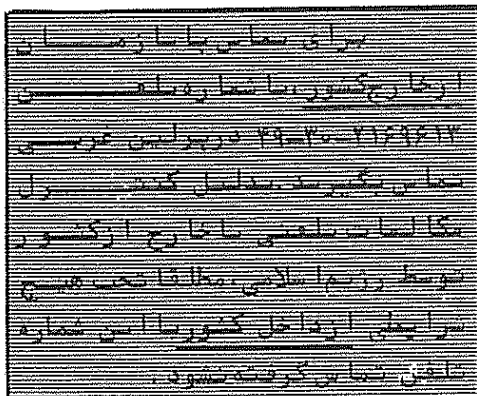 برای تماس با سازمان
ازخارج‌کشور، با شماره تلفن
۷۱۶۹۶۱۳-۳۰-۴۹ در برلین غربی
تماس بگیرید. بدلیل کنترل
مکالمات تلفنی با خارج ازکشور
توسط رژیم اسلامی، مطلقا تحت هیچ
شرایطی ازداخل کشور با این شماره
تلفن تماس گرفته نشود.